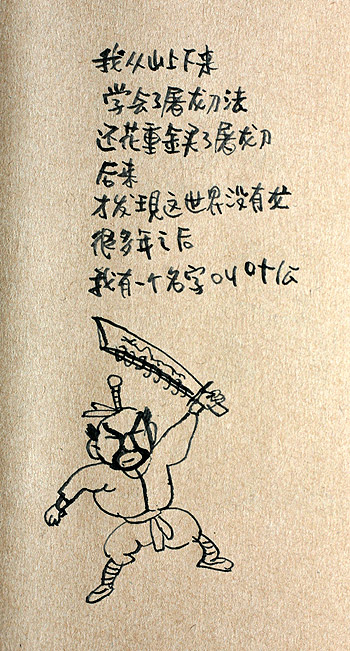 我从山上下来
学会了屠龙刀法
还花重金买了屠龙刀
后来
才发现这世界没有龙
很多年之后
我有一个名字叫叶公